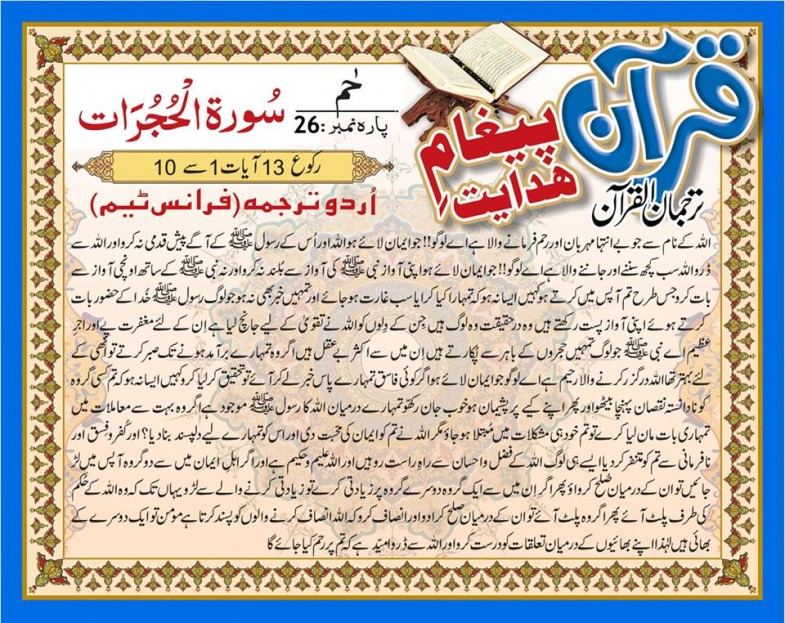 قرآن
پیغامِ
ھدایت
ترجمان القرآن
حٰم
پارہ نمبر :26
سُورۃ الْحُجُرَات
رکوع 13 آیات 1 سے 10
اُردو ترجمہ (فرانس ٹیم)
اللہ کے نام سے جو بے انتہا مہربان اور رحم فرمانے والا ہے اے لوگو!! جو ایمان لائے ہو اللہ اور اُس کے رسول ﷺ کے آگے پیش قدمی نہ کرو اور اللہ سے
ڈرو اللہ سب کچھ سننے اور جاننے والا ہے اے لوگو!! جو ایمان لائے ہو اپنی آواز نبی ﷺ کی آواز سے بُلند نہ کرو اور نہ نبی ﷺ کے ساتھ اونچی آواز سے
بات کرو جس طرح تم آپس میں کرتے ہو کہیں ایسا نہ ہو کہ تمہارا کیا کرایا سب غارت ہو جائے اور تمہیں خبر بھی نہ ہو جو لوگ رسول ﷺ خُدا کے حضور بات
کرتے ہوئے اپنی آواز پست رکھتے ہیں وہ درحقیقت وہ لوگ ہیں جِن کے دِلوں کو اللہ نے تقویٰ کے لیے جانچ لیا ہے اِن کے لئے مغفرت ہے اور اجرِ
عظیم اے نبی ﷺ جو لوگ تمہیں حجروں کے باہر سے پُکارتے ہیں اِن میں سے اکثر بے عقل ہیں اگر وہ تمہارے برآمد ہونے تک صبر کرتے تو انہی کے
لئے بہتر تھا اللہ درگزر کرنے والا رحیم ہے اے لوگو جو ایمان لائے ہو اگر کوئی فاسق تمہارے پاس خبر لے کر آئے تو تحقیق کر لیا کرو کہیں ایسا نہ ہو کہ تم کسی گروہ
کو نادانستہ نقصان پہنچا بیٹھو اور پھر اپنے کیے پر پشیمان ہو خوب جان رکھو تمہارے درمیان اللہ کا رسول ﷺ موجود ہے اگر وہ بہت سے معاملات میں
تمہاری بات مان لیا کرے تو تم خود ہی مشکلات میں مُبتلا ہو جاؤ مگر اللہ نے تم کو ایمان کی محبت دی اور اس کو تمہارے لیے دلپسند بنا دیا؟ اور کُفر و فسق اور
نافرمانی سے تم کو متنفر کر دیا ایسے ہی لوگ اللہ کے فضل و احسان سے راہِ راست رو ہیں اور اللہ علیم و حکیم ہے اور اگر اہلِ ایمان میں سے دو گروہ آپس میں لڑ
جائیں تو ان کے درمیان صُلح کرواؤ پھر اگر اِن میں سے ایک گروہ دوسرے گروہ پر زیادتی کرے تو زیادتی کرنے والے سے لڑو یہاں تک کہ وہ اللہ کے حُکم
کی طرف پلٹ آئے پھر اگر وہ پلٹ آئے تو ان کے درمیان صلح کرا دو اور انصاف کرو کہ اللہ انصاف کرنے والوں کو پسند کرتا ہے مؤمن تو ایک دوسرے کے
بھائی ہیں لہٰذا اپنے بھائیوں کے درمیان تعلقات کو درست کرو اور اللہ سے ڈرو امیّد ہے کہ تم پر رحم کیا جائے گا